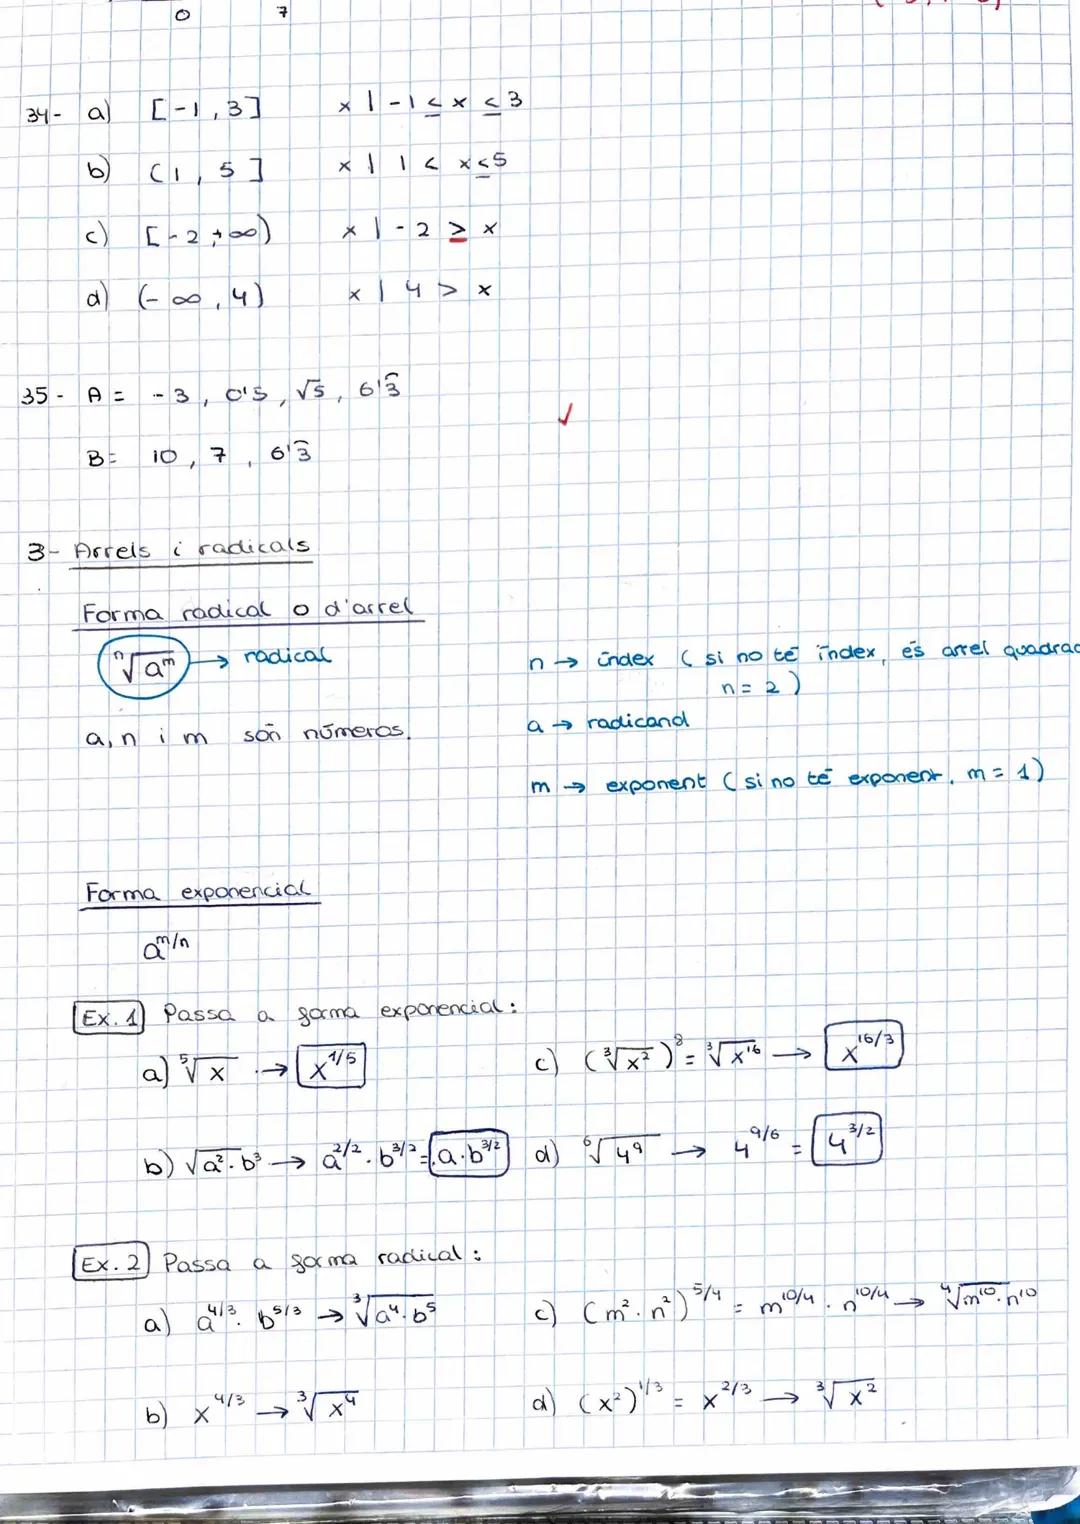 0 7
34- a) [-1, 3] x | -1 ≤ x ≤ 3
b) (1, 5] x | 1 < x ≤ 5
c) [-2, +∞) x | -2 ≥ x
d) (-∞, 4) x | 4 > x
35- A = -3, 0'5, √5, 6'3̂
B = 10, 7, 6'3̂
3- Arrels i radicals
Forma radical o d'arrel
ⁿ√aᵐ → radical
n → índex (si no té índex, és arrel quadrad
n = 2)
a, n i m són números.
a → radicand
m → exponent (si no té exponent, m = 1)
Forma exponencial
a^m/n
Ex. 1 Passa a forma exponencial:
a) ⁵√x → x^1/5
c) (³√x²)⁸ = ³√x¹⁶ → x^16/3
b) √a²·b³ → a^2/2 · b^3/2 = a·b^3/2
d) ⁶√4⁹ → 4^9/6 = 4^3/2
Ex. 2 Passa a forma radical:
a) a^4/3 · b^5/3 → ³√a⁴·b⁵
c) (m²·n²)^5/4 = m^10/4 · n^10/4 → ⁴√m¹⁰·n¹⁰
b) x^4/3 → ³√x⁴
d) (x²)^1/3 = x^2/3 → ³√x²